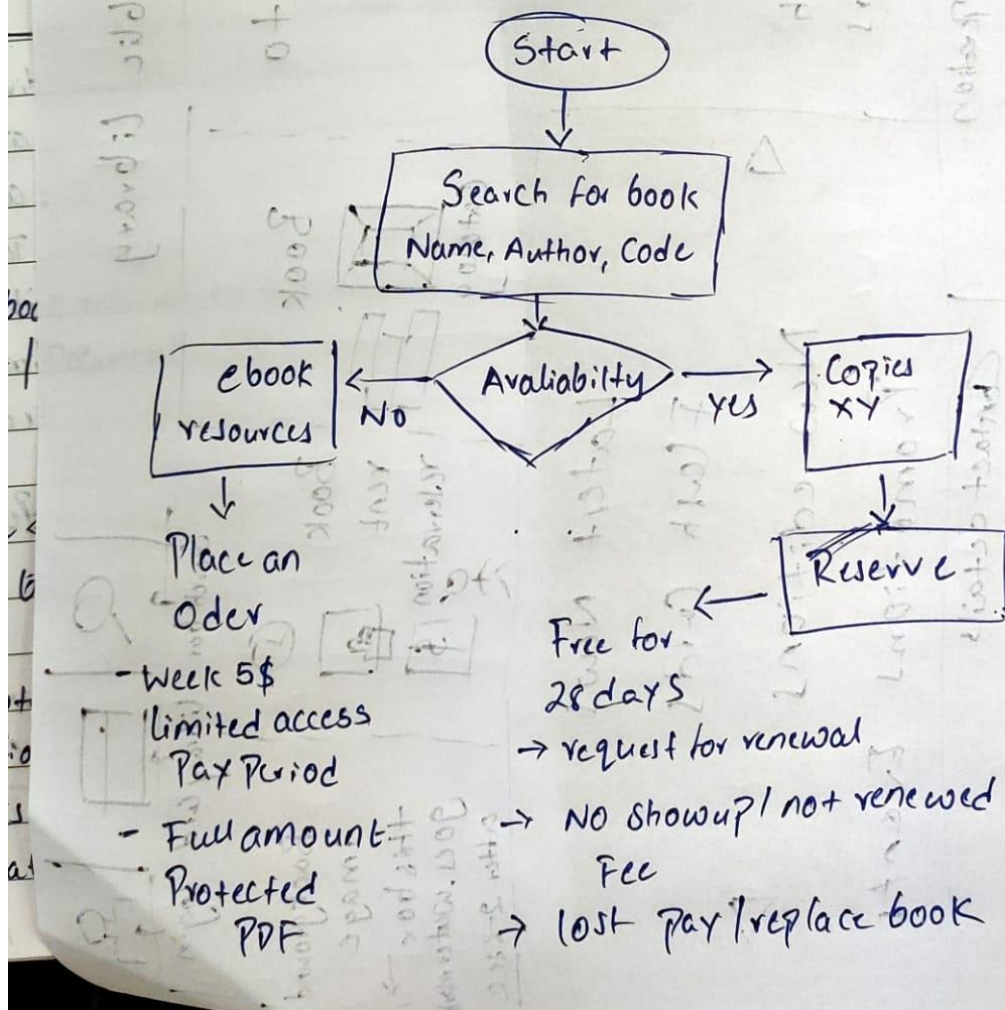 Start
Search for book
Name, Author, Code
Avaliabilty
No
yes
ebook
resources
Copies
XY
Reserve
Place an
Oder
- Week 5$
limited access
Pay Period
- Full amount
Protected
PDF
Free for
28 days
→ request for renewal
→ No showup / not renewed
Fee
→ lost pay / replace book